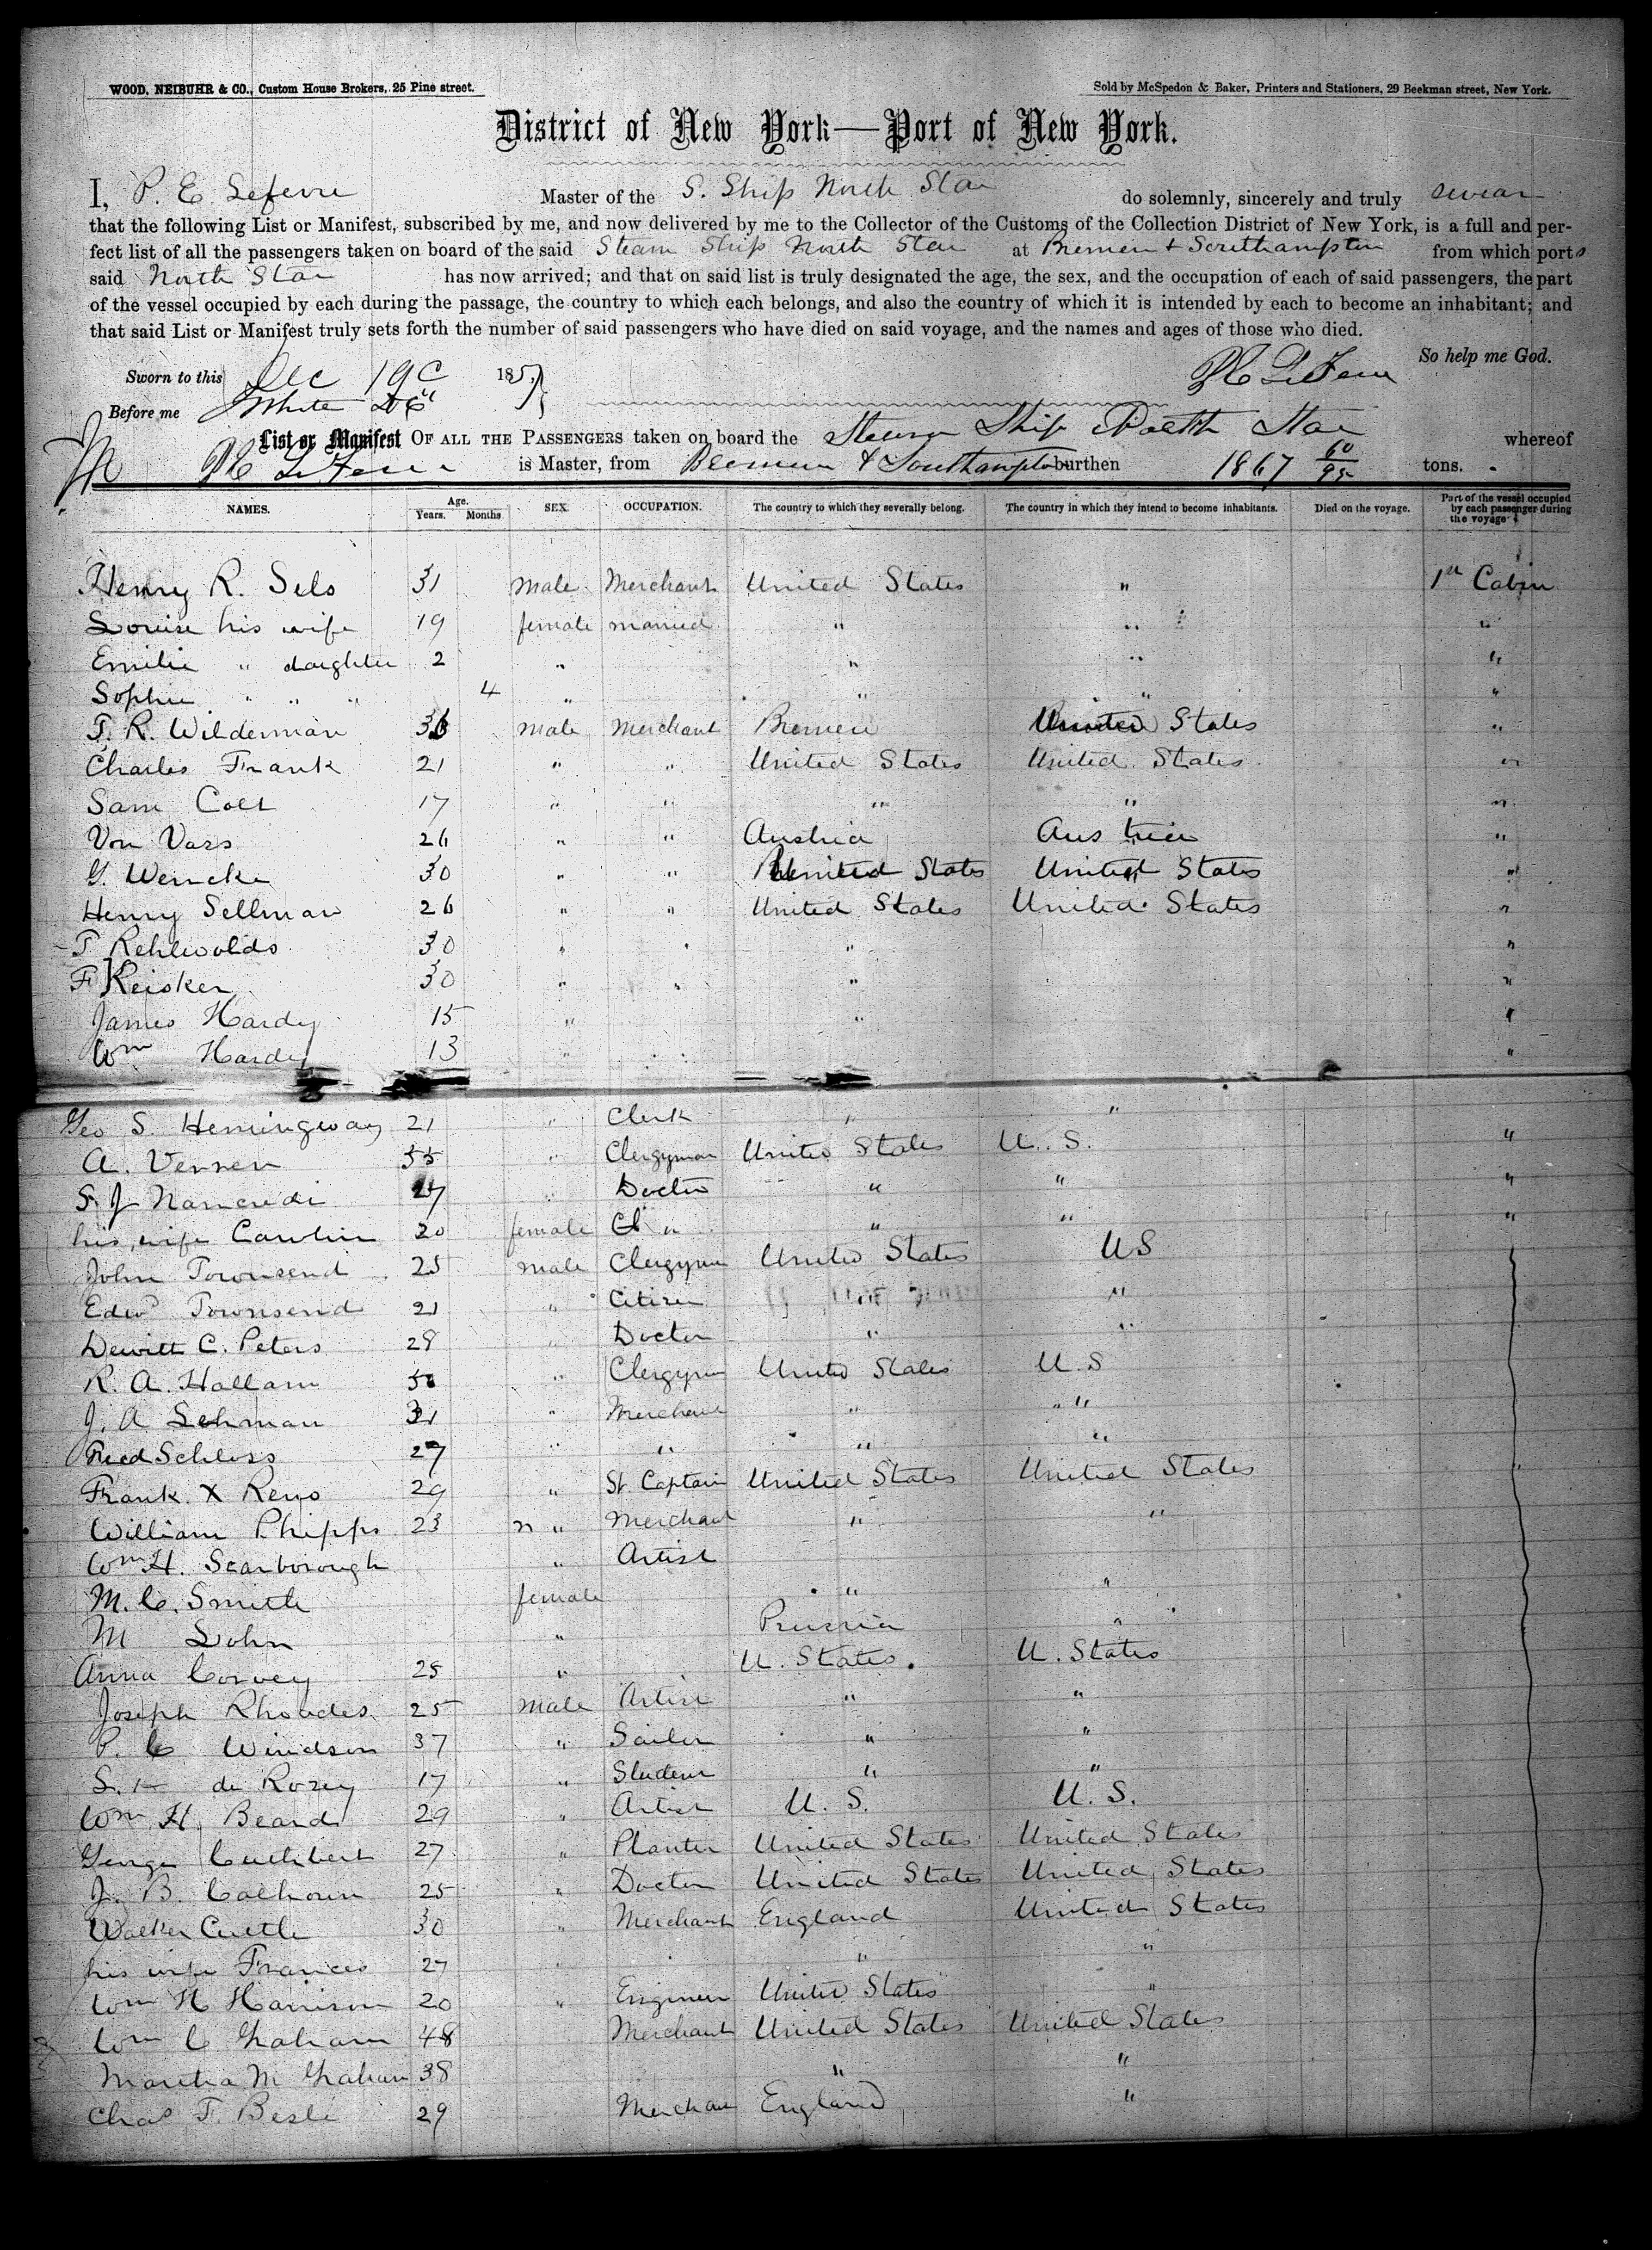 WOOD, NEIBUHR & CO., Custom House Brokers, 25 Pine street.
Sold by McSpedon & Baker, Printers and Stationers, 29 Beekman street, New York.
District of New York—Port of New York.
I, P. E. Lefevre Master of the S. Ship North Star do solemnly, sincerely and truly swear
that the following List or Manifest, subscribed by me, and now delivered by me to the Collector of the Customs of the Collection District of New York, is a full and per-
fect list of all the passengers taken on board of the said Steam Ship North Star at Bremen & Southampton from which ports
said North Star has now arrived; and that on said list is truly designated the age, the sex, and the occupation of each of said passengers, the part
of the vessel occupied by each during the passage, the country to which each belongs, and also the country of which it is intended by each to become an inhabitant; and
that said List or Manifest truly sets forth the number of said passengers who have died on said voyage, and the names and ages of those who died.
So help me God.
Sworn to this Dec 19 1857
Before me White
List or Manifest OF ALL THE PASSENGERS taken on board the Steam Ship North Star whereof
is Master, from Bremen & Southampton burthen 1867 60/95 tons.
NAMES. Age. Years. Months. SEX. OCCUPATION. The country to which they severally belong. The country in which they intend to become inhabitants. Died on the voyage. Part of the vessel occupied by each passenger during the voyage.
Henry R. Sels 31 male Merchant United States " 1st Cabin
Louise his wife 19 female married " " "
Emilie " daughter 2 " " " "
Sophie " " " 4 " " " "
T. R. Wilderman 36 male Merchant Bremen United States "
Charles Frank 21 " " United States United States "
Sam Colt 17 " " " " "
Von Vass 26 " " Austria Austria "
G. Wencke 30 " " United States United States "
Henry Sellman 26 " " United States United States "
T Rehlwolds 30 " " " "
F Reisker 30 " " " "
James Hardy 15 " " "
Wm Hardy 13 " " "
Geo S. Hemingway 21 " Clerk " "
A. Verren 55 " Clergyman United States U. S. "
S. J Nancrede 27 " Doctor " " "
his wife Carolin 20 female " " "
John Townsend 25 male Clergyman United States US
Edwd Townsend 21 " Citizen "
Dewitt C. Peters 28 " Doctor " "
R. A. Hallam 50 " Clergyman United States U. S
J. A Lehman 31 " Merchant " " "
Fred Schloss 27 " " " "
Frank X Reno 29 " St. Captain United States United States
William Phipps 23 " Merchant " "
Wm H. Scarborough " Artist
M. C. Smith female " "
M John " Prussia "
Anna Corvey 25 " U. States. U. States
Joseph Rhoades 25 male Artist " "
P. C Windson 37 " Sailor " "
S. de Rozey 17 " Student " "
Wm H. Beard 29 " Artist U. S. U. S.
George Cuthbert 27 " Planter United States United States
J. B. Calhoun 25 " Doctor United States United States
Walker Cuttle 30 " Merchant England United States
his wife Frances 27 " " "
Wm H Harrison 20 " Engineer United States "
Wm C Graham 48 Merchant United States United States
Martha M Graham 38 " "
Chas F. Besle 29 Merchant England "